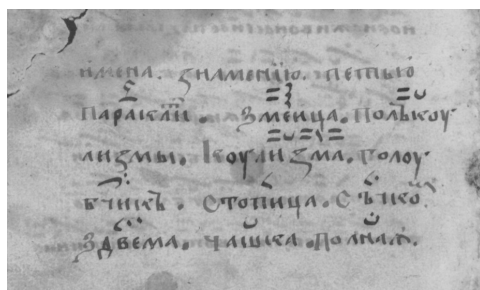 имена. знамению. пѣтью
параклит. Змеица. Полъкоу
лизмы. Ікоулизма. голоу
бчикъ. Стопица. Съ ѡко.
з двема. чашка. Полная.